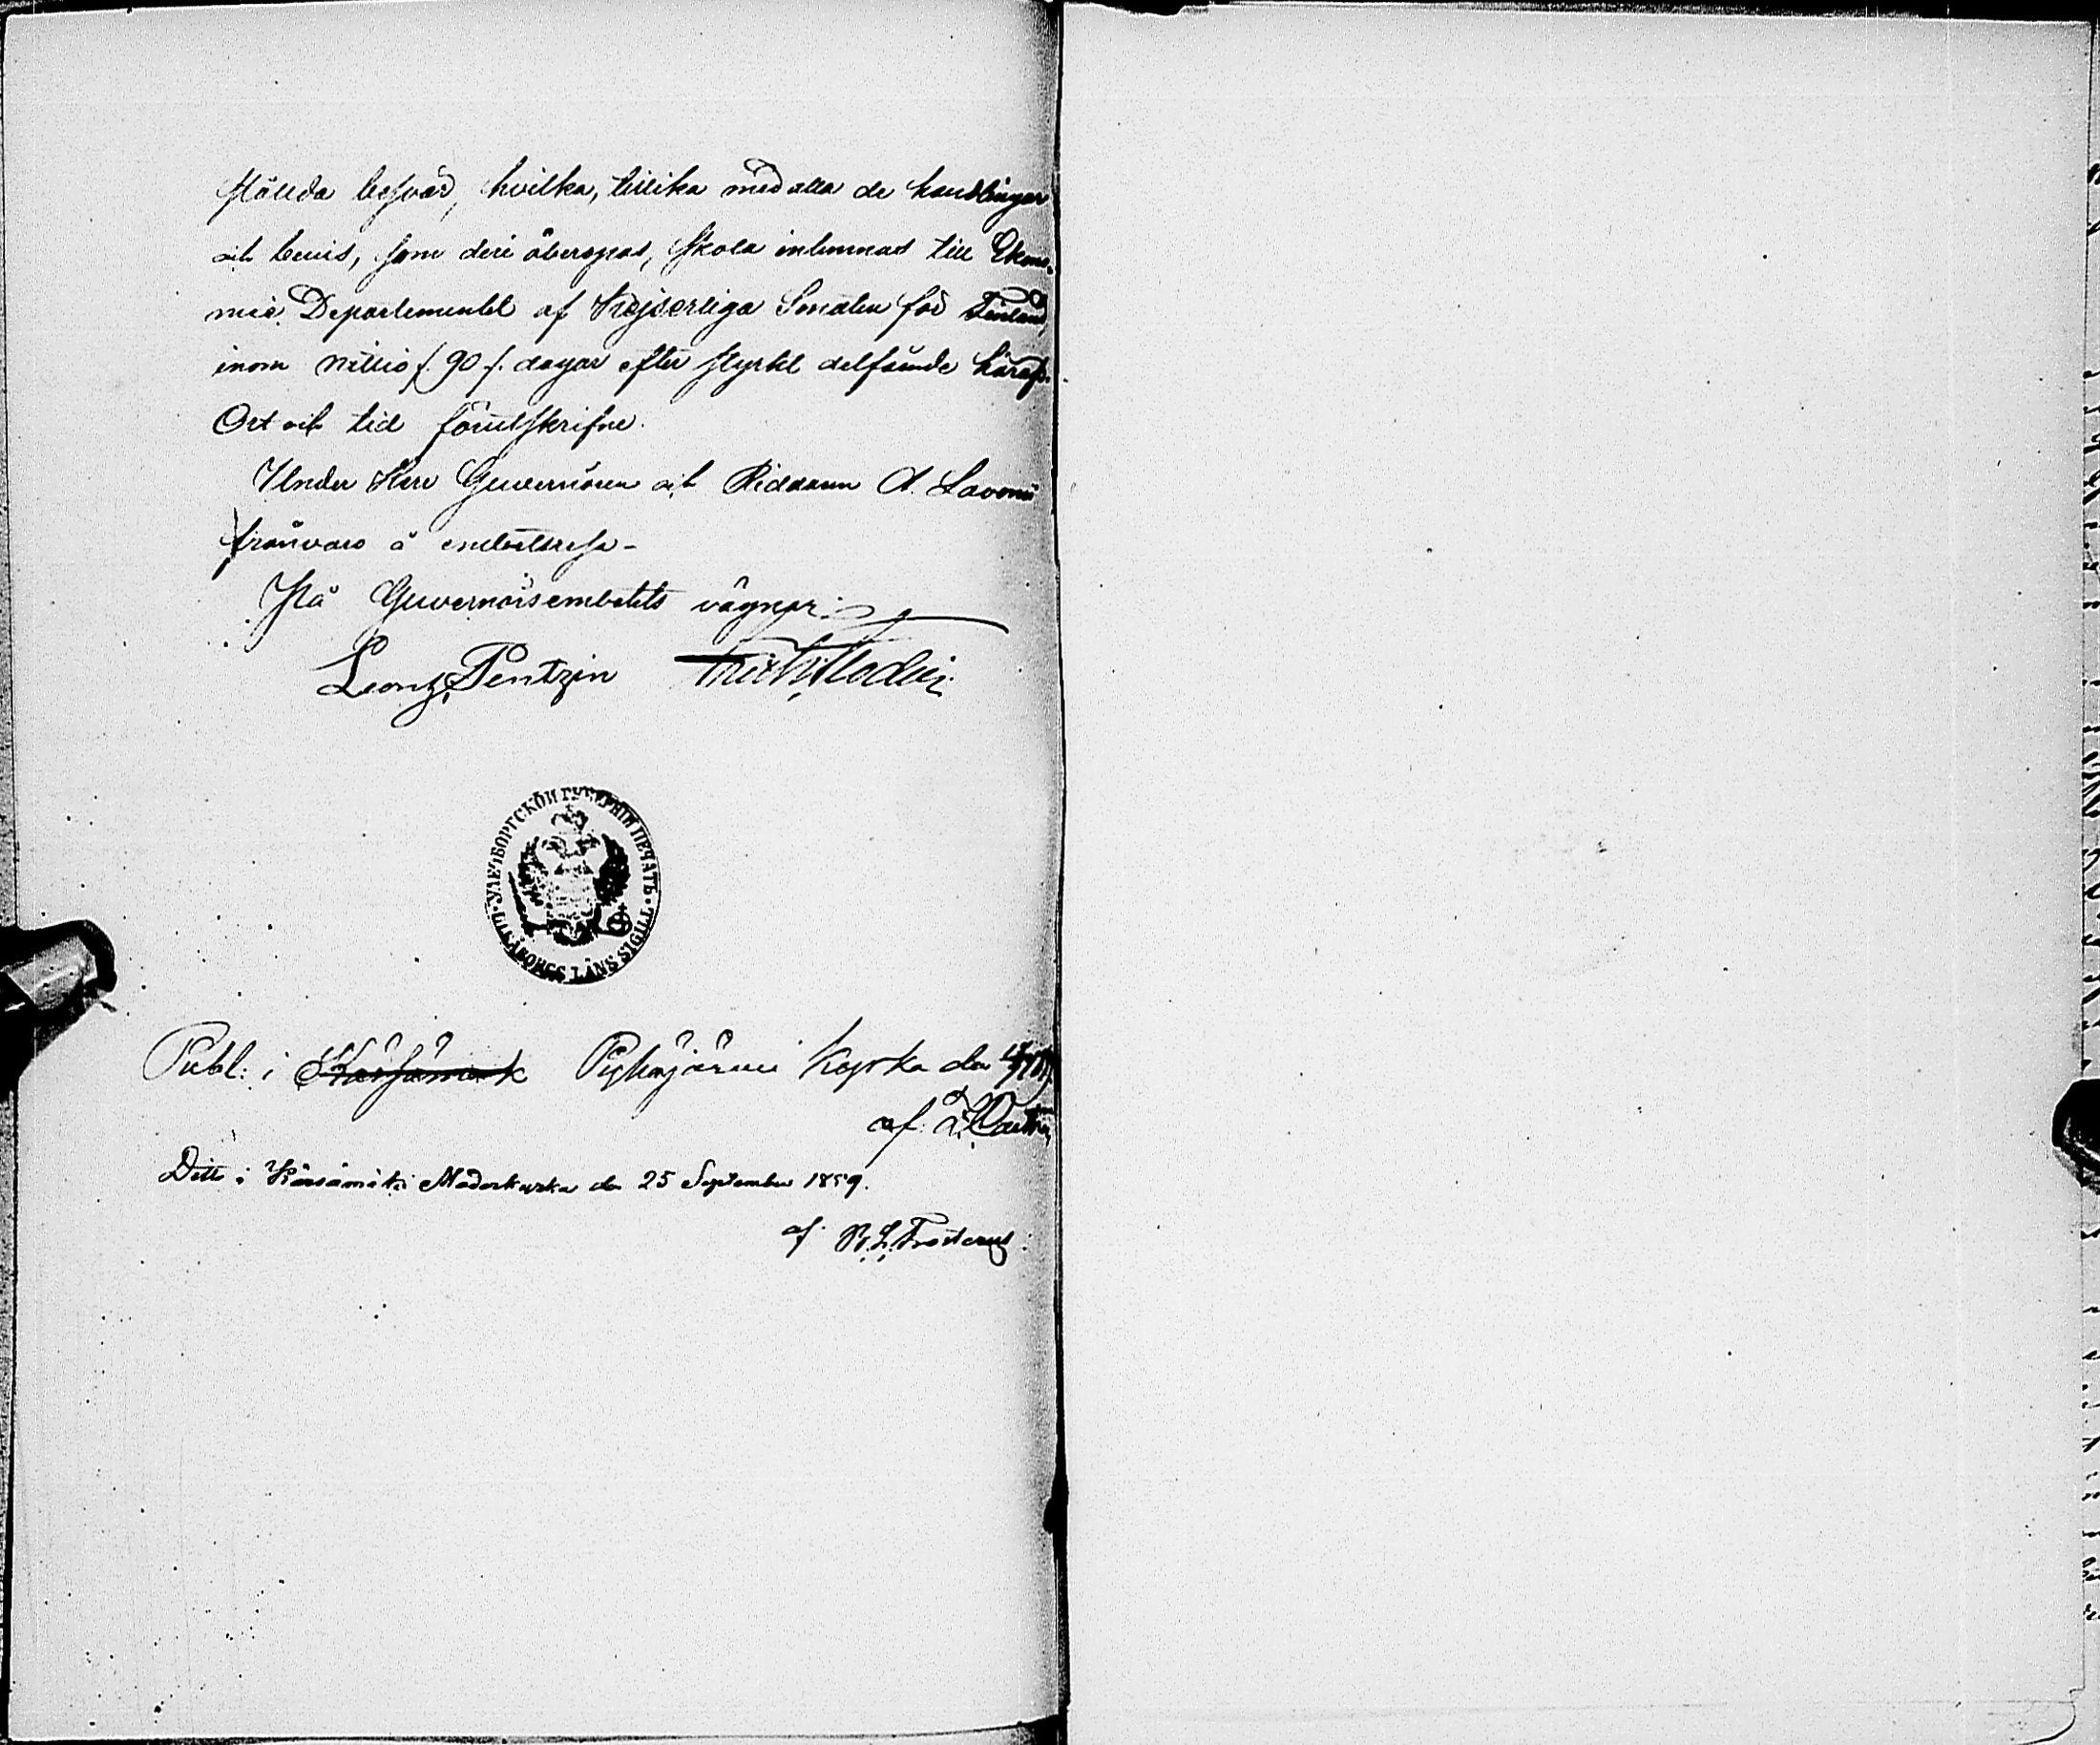 ställda besvär, hvilka, tillika med alla de handlingar
och bevis, som deri åberopas, skola inlemnas till Ekono-
mie Departementet af Kejserliga Senaten för Finland,
inom nittio /. 90 /. dagar efter styrkt delfående häraf.
Ort och tid förutskrifne.
Under Herr Guvernören och Riddaren A. Lavonii
frånvaro å embetsresa -
På Guvernörsembetets vägnar:
Leon. Pentzin
УЛЕАБОРГСКОЙ ГУБЕРНІИ ПЕЧАТЬ
ULEÅBORGS LÄNS SIGILL
Publ: i Kärsämäk Pyhäjärvi Kyrka den
af
Ditto i Kärsämäki Moderkyrka den 25 September 1859.
af B. L. Frosterus.